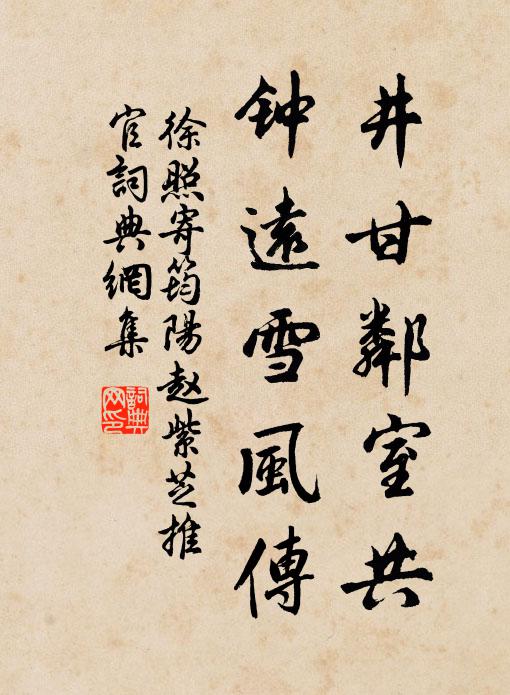 井甘鄰室共
钟遠雪風傳
徐照寄筠陽趙紫芝推
官詞典網集
詞典
网印